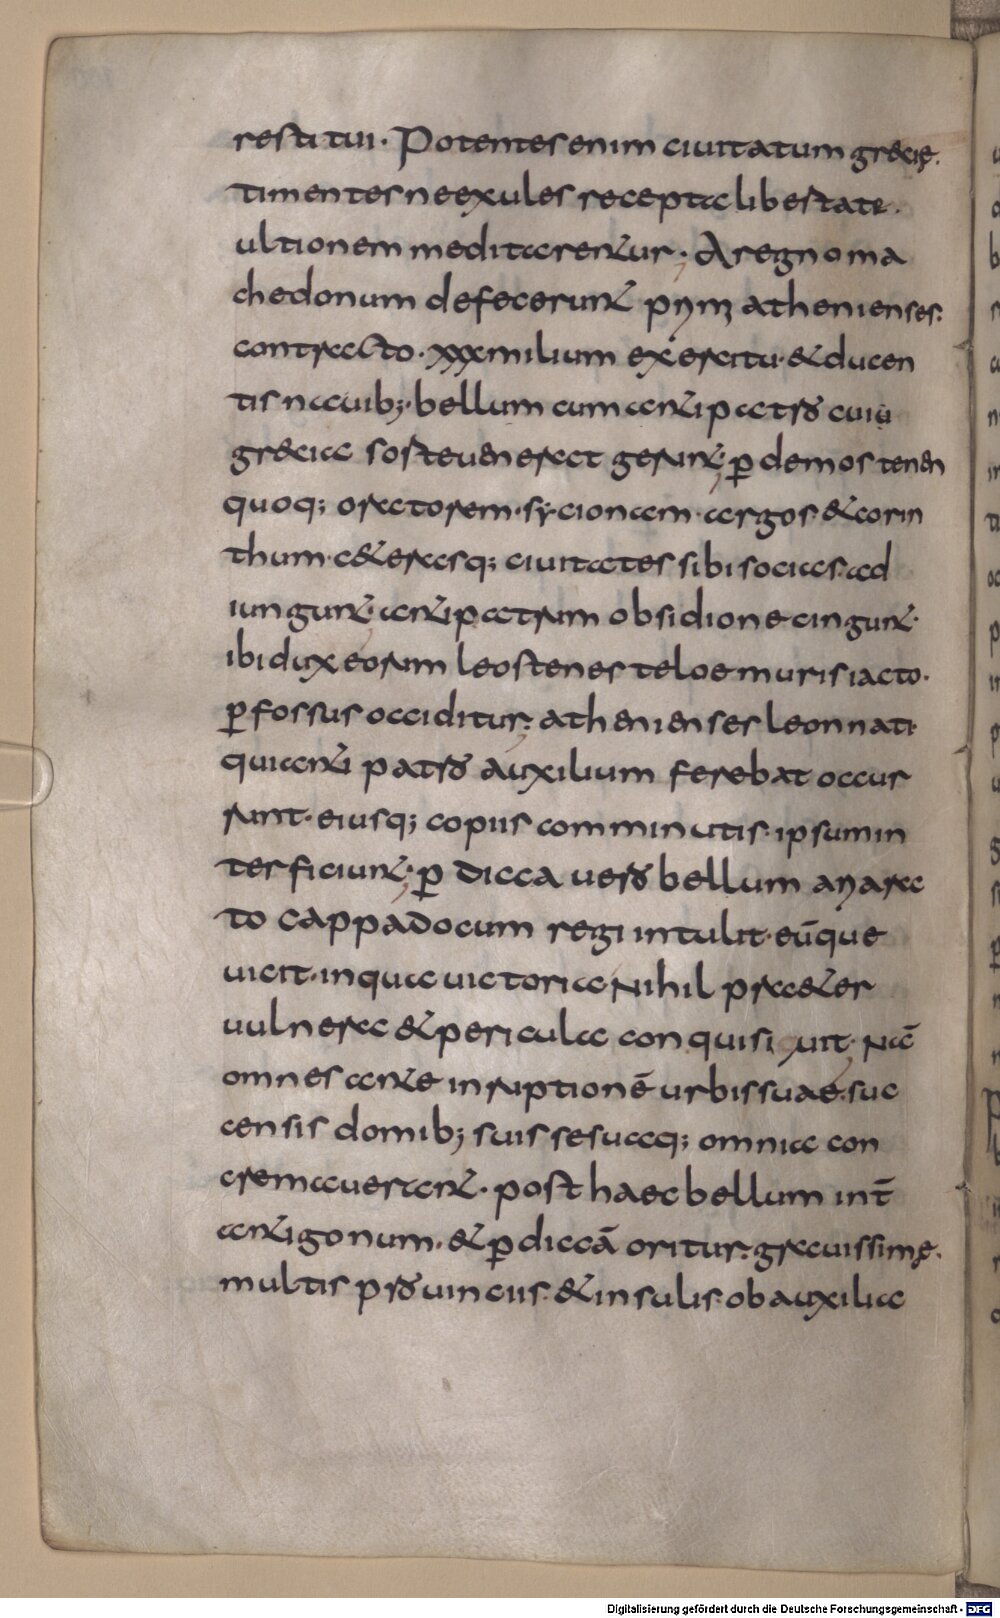 restitui. Potentes enim ciuitatum grecię.
timentes ne exules recepta libestate.
ultionem meditarentur; A regno ma
chedonum defecerunt pymȝ athenienses:
contracto. xxx milium exercitu. & ducen
tis nauib; bellum cum antipatro cuiū
greciae sosteuenerat gerunt; p̱ demostenen
quoq; oratorem. sycionam. argos. & corin
thum. c&erasq; ciuitates sibi socias. ad
iungunt. antipatrum obsidione cingunt.
ibi dux eorum leostenes telo e muris iacto.
p̱fossus occiditur; athenienses leonnati
qui anti patro auxilium ferebat occur
runt. eiusq; copiis comminutis. ipsum in
terficiunt; p̱dicca uero bellum ayara
to cappadocum regi intulit. eūque
uicit. in qua uictoria Nihil pra&er
uulnera & pericula conquisi uit. Nā
omnes ante inruptionē urbis suae. suc
censis domib; suis se suaq; omnia con
cremauerant. post haec bellum int̄
antigonum. & p̱diccā oritur. grauissimę.
multis prouinciis. & insulis. ob auxilia
Digitalisierung gefördert durch die Deutsche Forschungsgemeinschaft - DFG